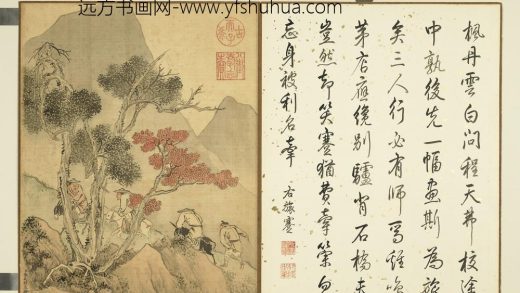 远方书画网-www.yfshuhua.com
楓丹雲白問程天弗校途
中孰後先一幅畫斯為旅
矣三人行必有師焉
茅店應纔別驢背石橋
豈然却笑蹇猶費牽策勿
忘身被利名牽
右旅蹇